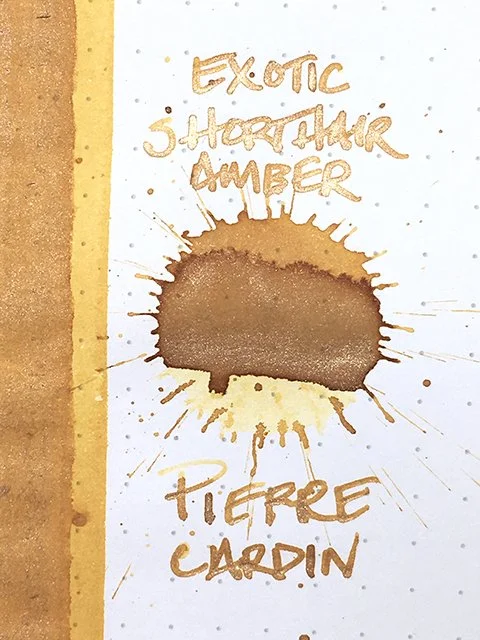 EXOTIC
SHORTHAIR
AMBER
PIERRE
CARDIN